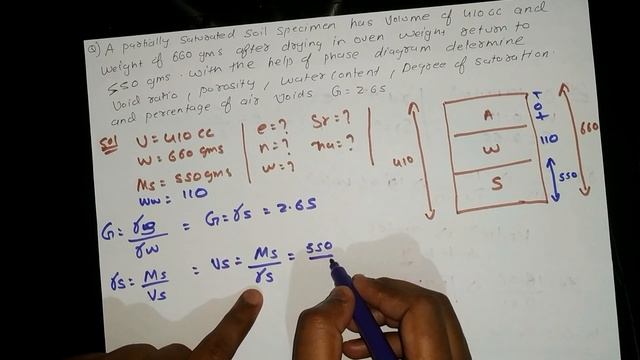 Q) A partially saturated soil specimen has volume of 410 cc and
weight of 660 gms after drying in oven weight return to
550 gms. with the help of phase diagram determine
Void ratio, porosity, water content, Degree of saturation.
and percentage of air voids G = 2.65
Sol V = 410 cc
W = 660 gms
Ms = 550 gms
Ww = 110
e = ? Sr = ?
n = ? na = ?
w = ?
410
A
W
S
0
110
550
660
G = γs/γw = G = γs = 2.65
γs = Ms/Vs = Vs = Ms/γs = 550